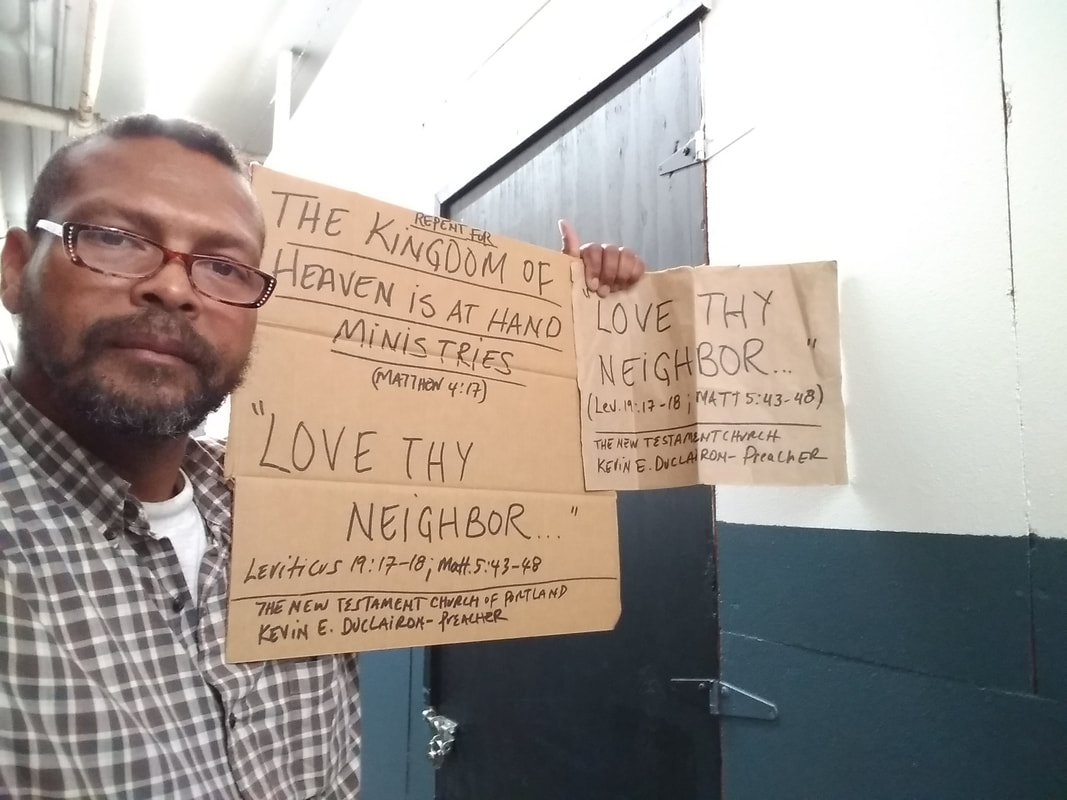 REPENT FOR
THE KiNGDOM OF
HEAVEN iS AT HAND
MiNiSTRIES
(MATTHEW 4:17)
"LOVE THY
NEiGHBOR..."
Leviticus 19:17-18; Matt. 5:43-48
THE NEW TESTAMENT CHURCH OF PORTLAND
KEViN E. DUCLAiRON- PreacHER
"LOVE THY
NEiGHBOR..."
(Lev. 19:17-18; MATT 5:43-48)
THE NEW TESTAMENT CHURCH
KEViN E. DUCLAiRON- PreacHER